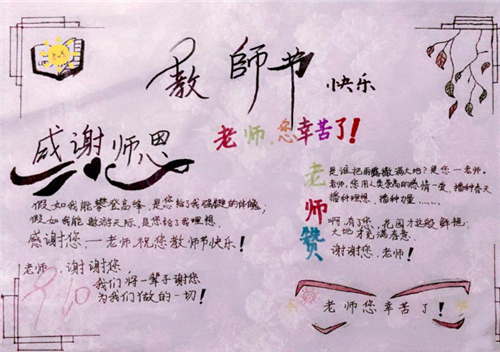 教師节 快乐
感谢师恩
老师,您幸苦了!
假如我能攀登高峰,是您给了我强健的体魄,
假如我能遨游天际,是您给了我理想.
感谢您一老师,祝您教师节快乐!
老师,谢谢您,
我们将一辈子谢您
为我们做的一切!
9 10
老师赞
是谁把雨露撒满大地?是您一老师.
老师,您用人类崇高的热情一爱,播种春天
播种理想、播种力量……
啊,有了您,花园才这般鲜艳,
大地才充满春意.
谢谢您,老师!
老师您幸苦了!